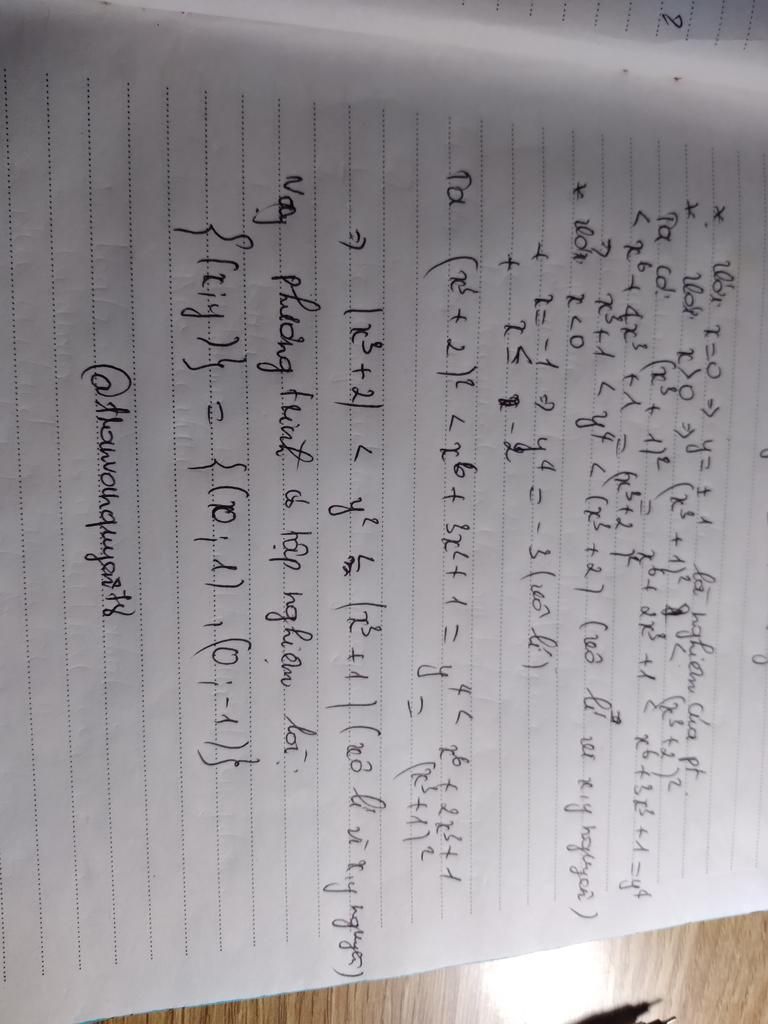 * Với x=0 ⇒ y = ±1 là nghiệm của pt.
* Với x>0 ⇒ (x³+1)² < (x³+2)²
Ta có: (x³+1)² = x⁶ + 2x³ + 1 < x⁶+3x³+1 = y⁴
< x⁶ + 4x³ + 1 = (x³+2)²
⇒ x³+1 < y⁴ < (x³+2) (vô lí vì x,y nguyên)
* Với x<0
+ x = -1 ⇒ y⁴ = -3 (vô lí)
+ x ≤ -2
Ta (x³ + 2)² < x⁶ + 3x² + 1 = y⁴ < x⁶ + 2x³ + 1
= (x³+1)²
⇒ |x³+2| < y² < |x³+1| (vô lí vì x,y nguyên)
Vậy phương trình có tập nghiệm là:
{(x;y)} = {(0;1), (0;-1)}
8